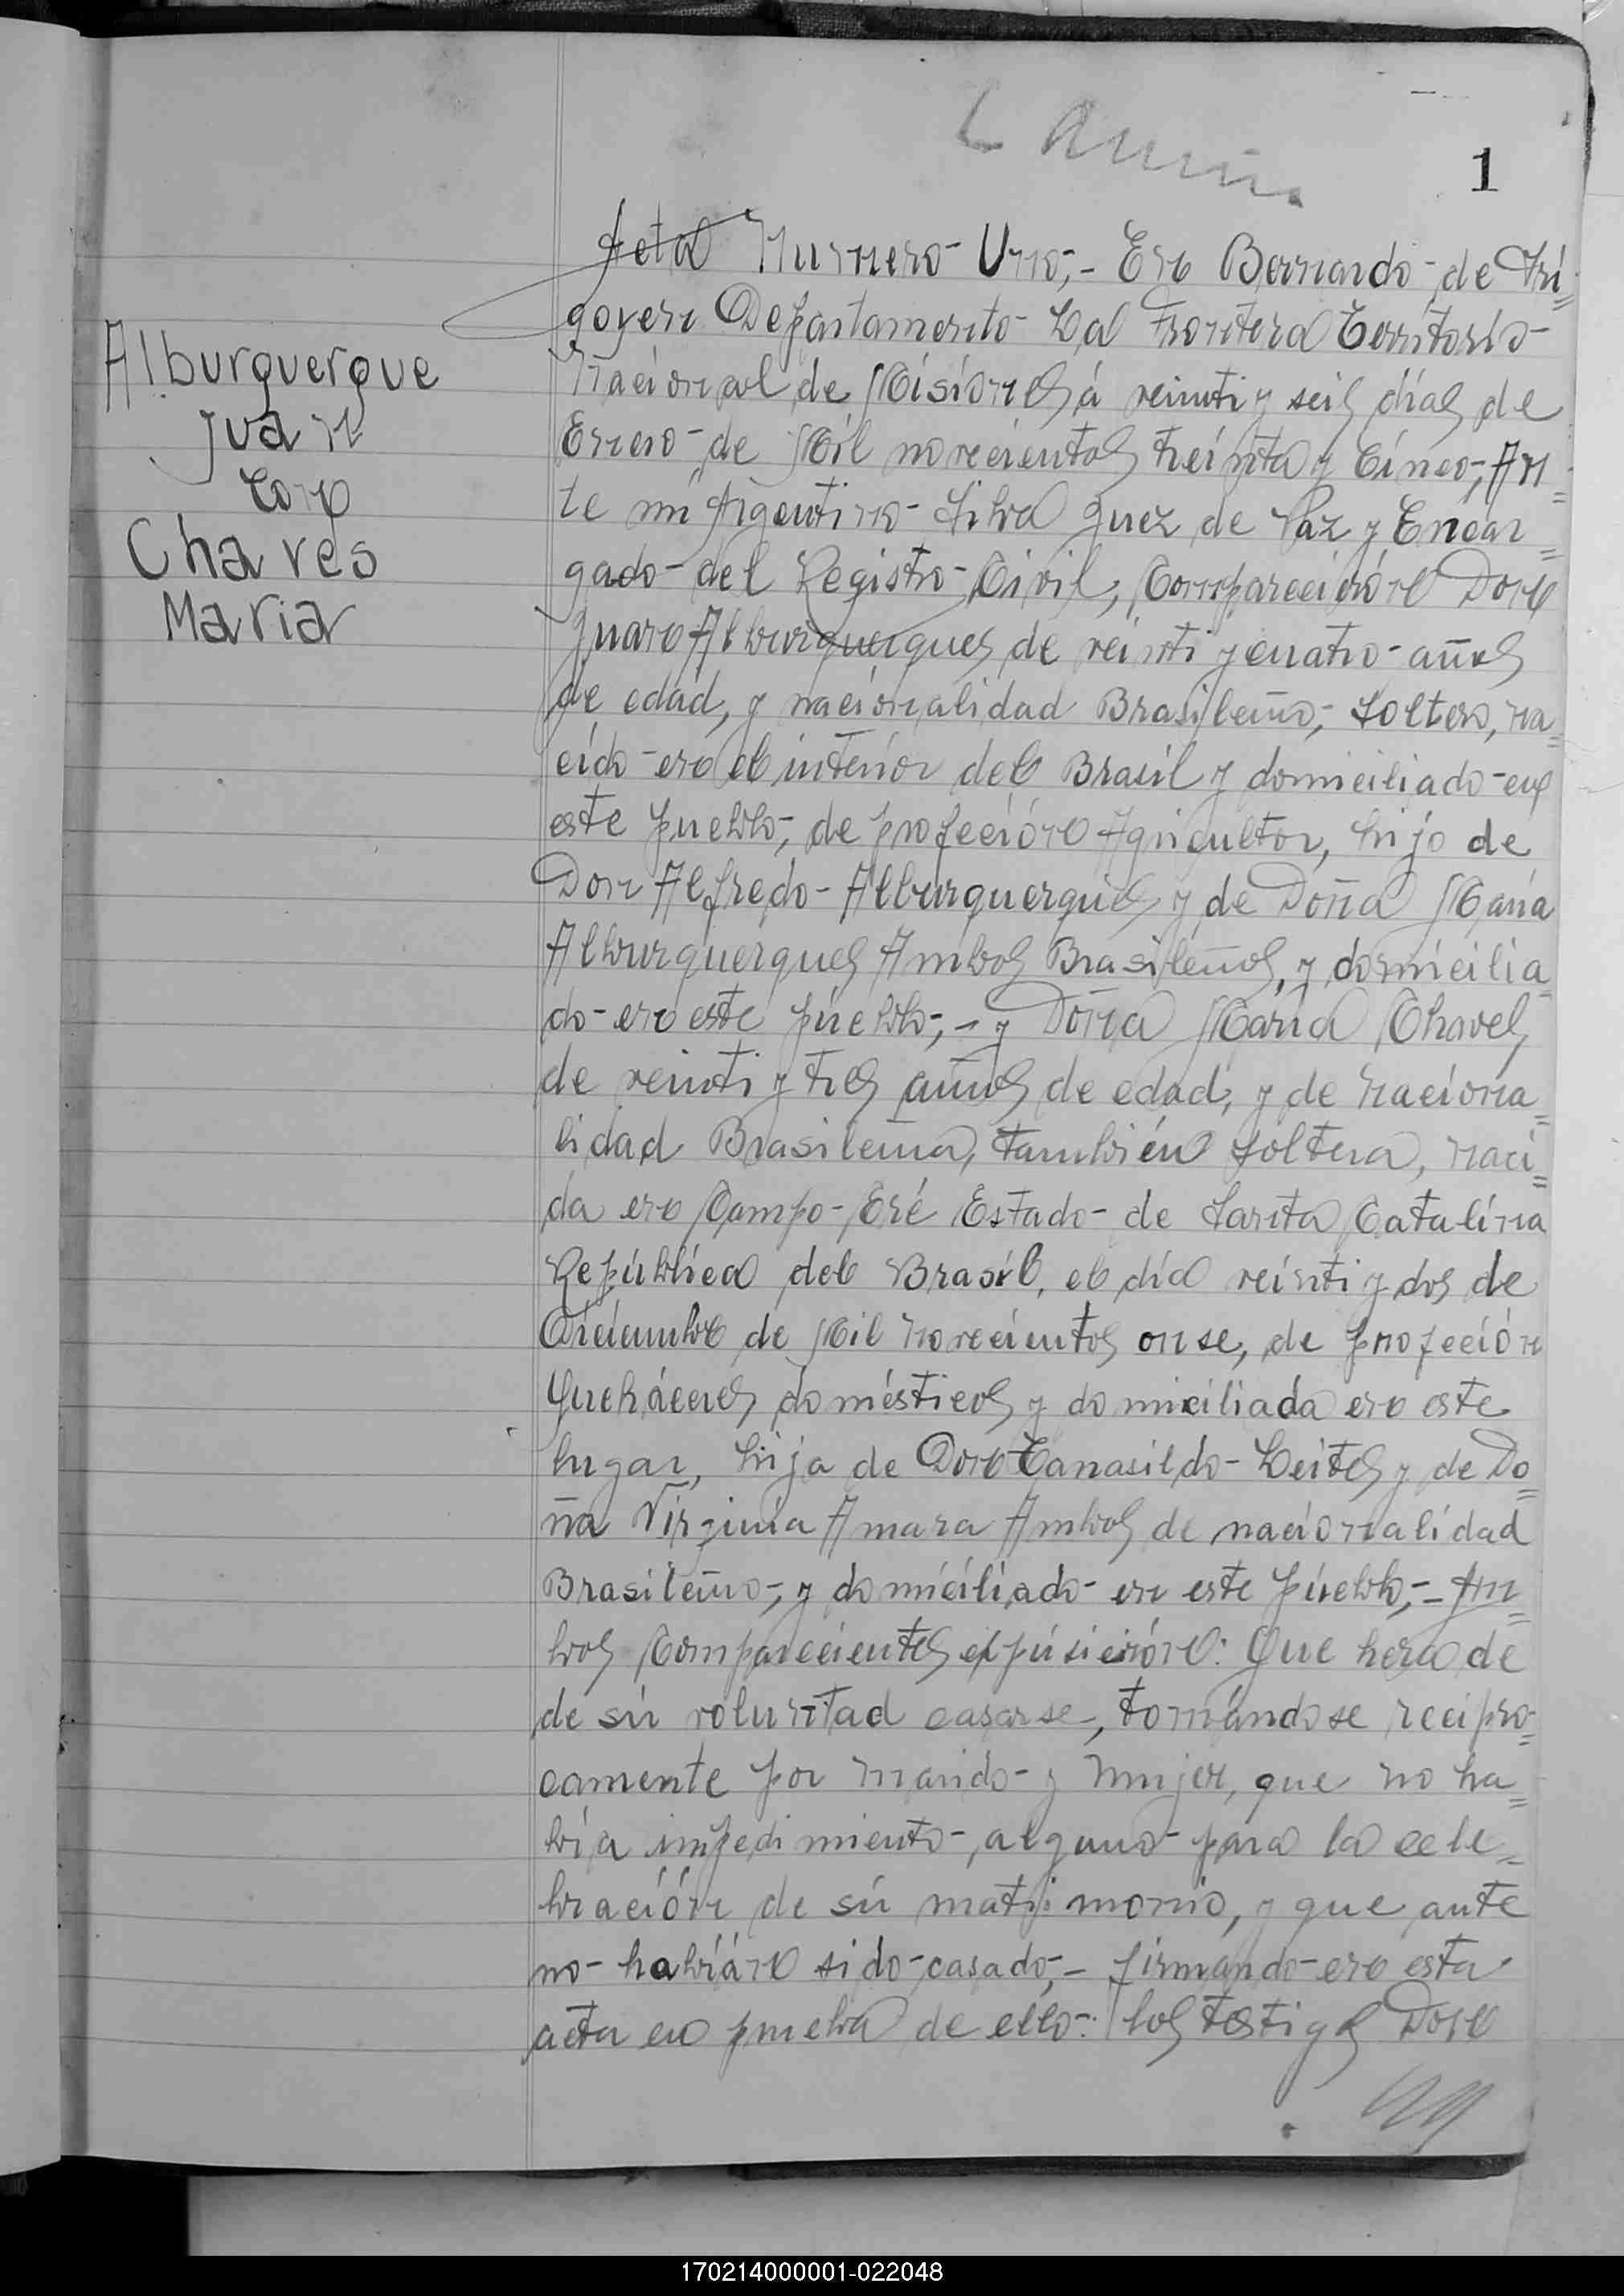 1
Acta Numero Uno;- En Bernardo de Iri=
goyen Departamento La Frontera Territorio
Nacional de Misiones á veinti y seis días de
Enero de Mil novecientos treinta y Cinco, An=
te mi Argentino Silva Juez de Paz y Encar=
gado del Registro Civil, Comparecierón Don
Juan Alburquerques de veinti y cuatro años
de edad, y nacionalidad Brasileño, Soltero, na=
cido en el interior del Brasil y domiciliado en
este pueblo, de profeción Agricultor, hijo de
Don Alfredo Alburquerques y de Doña María
Alburquerques Ambos Brasileños, y domicilia=
do en este púeblo,- y Doña María Chaves,
de veinti y tres años de edad, y de naciona=
lidad Brasileña, también soltera, naci=
da en Campo Eré Estado de Santa Catalina
República del Brasil, el día veinti y dos de
Diciembre de Mil novecientos onse, de profeción
Quehaceres domésticos y domiciliada en este
lugar, hija de Don Tanasildo Leites y de Do=
ña Virginia Amara Ambos de nacionalidad
Brasileño, y domiciliado en este púeblo,- Am=
bos Comparecientes expúsierón: Que hera de
de sú voluntad casarse, tomándose recipro=
camente por marido y mujer, que no ha=
bía impedimento alguno para la cele=
bración de sú matrimonio, y que ante
no habían sido casado,- firmando en esta
acta en prueba de ello: los testigos Don
Alburquerque
Juan
con
Chaves
Maria
170214000001-022048